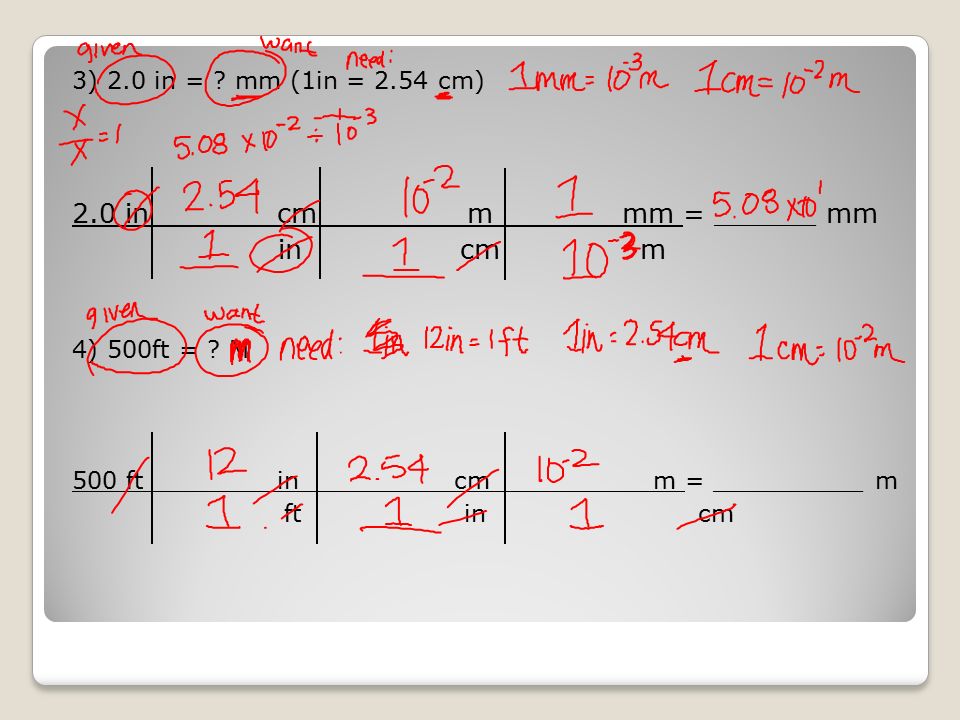 given want need:
3) 2.0 in = ? mm (1in = 2.54 cm) 1mm = 10^-3 m 1cm = 10^-2 m
x/x = 1 5.08 x10^-2 ÷ 10^-3
2.54 10^-2 1 5.08 x10^1
2.0 in cm m mm = ________ mm
1 in 1 cm 10^-3 m
given want
4) 500ft = ? m need: 12in = 1ft 1in = 2.54cm 1cm = 10^-2 m
12 2.54 10^-2
500 ft in cm m = ____________ m
1 ft 1 in 1 cm